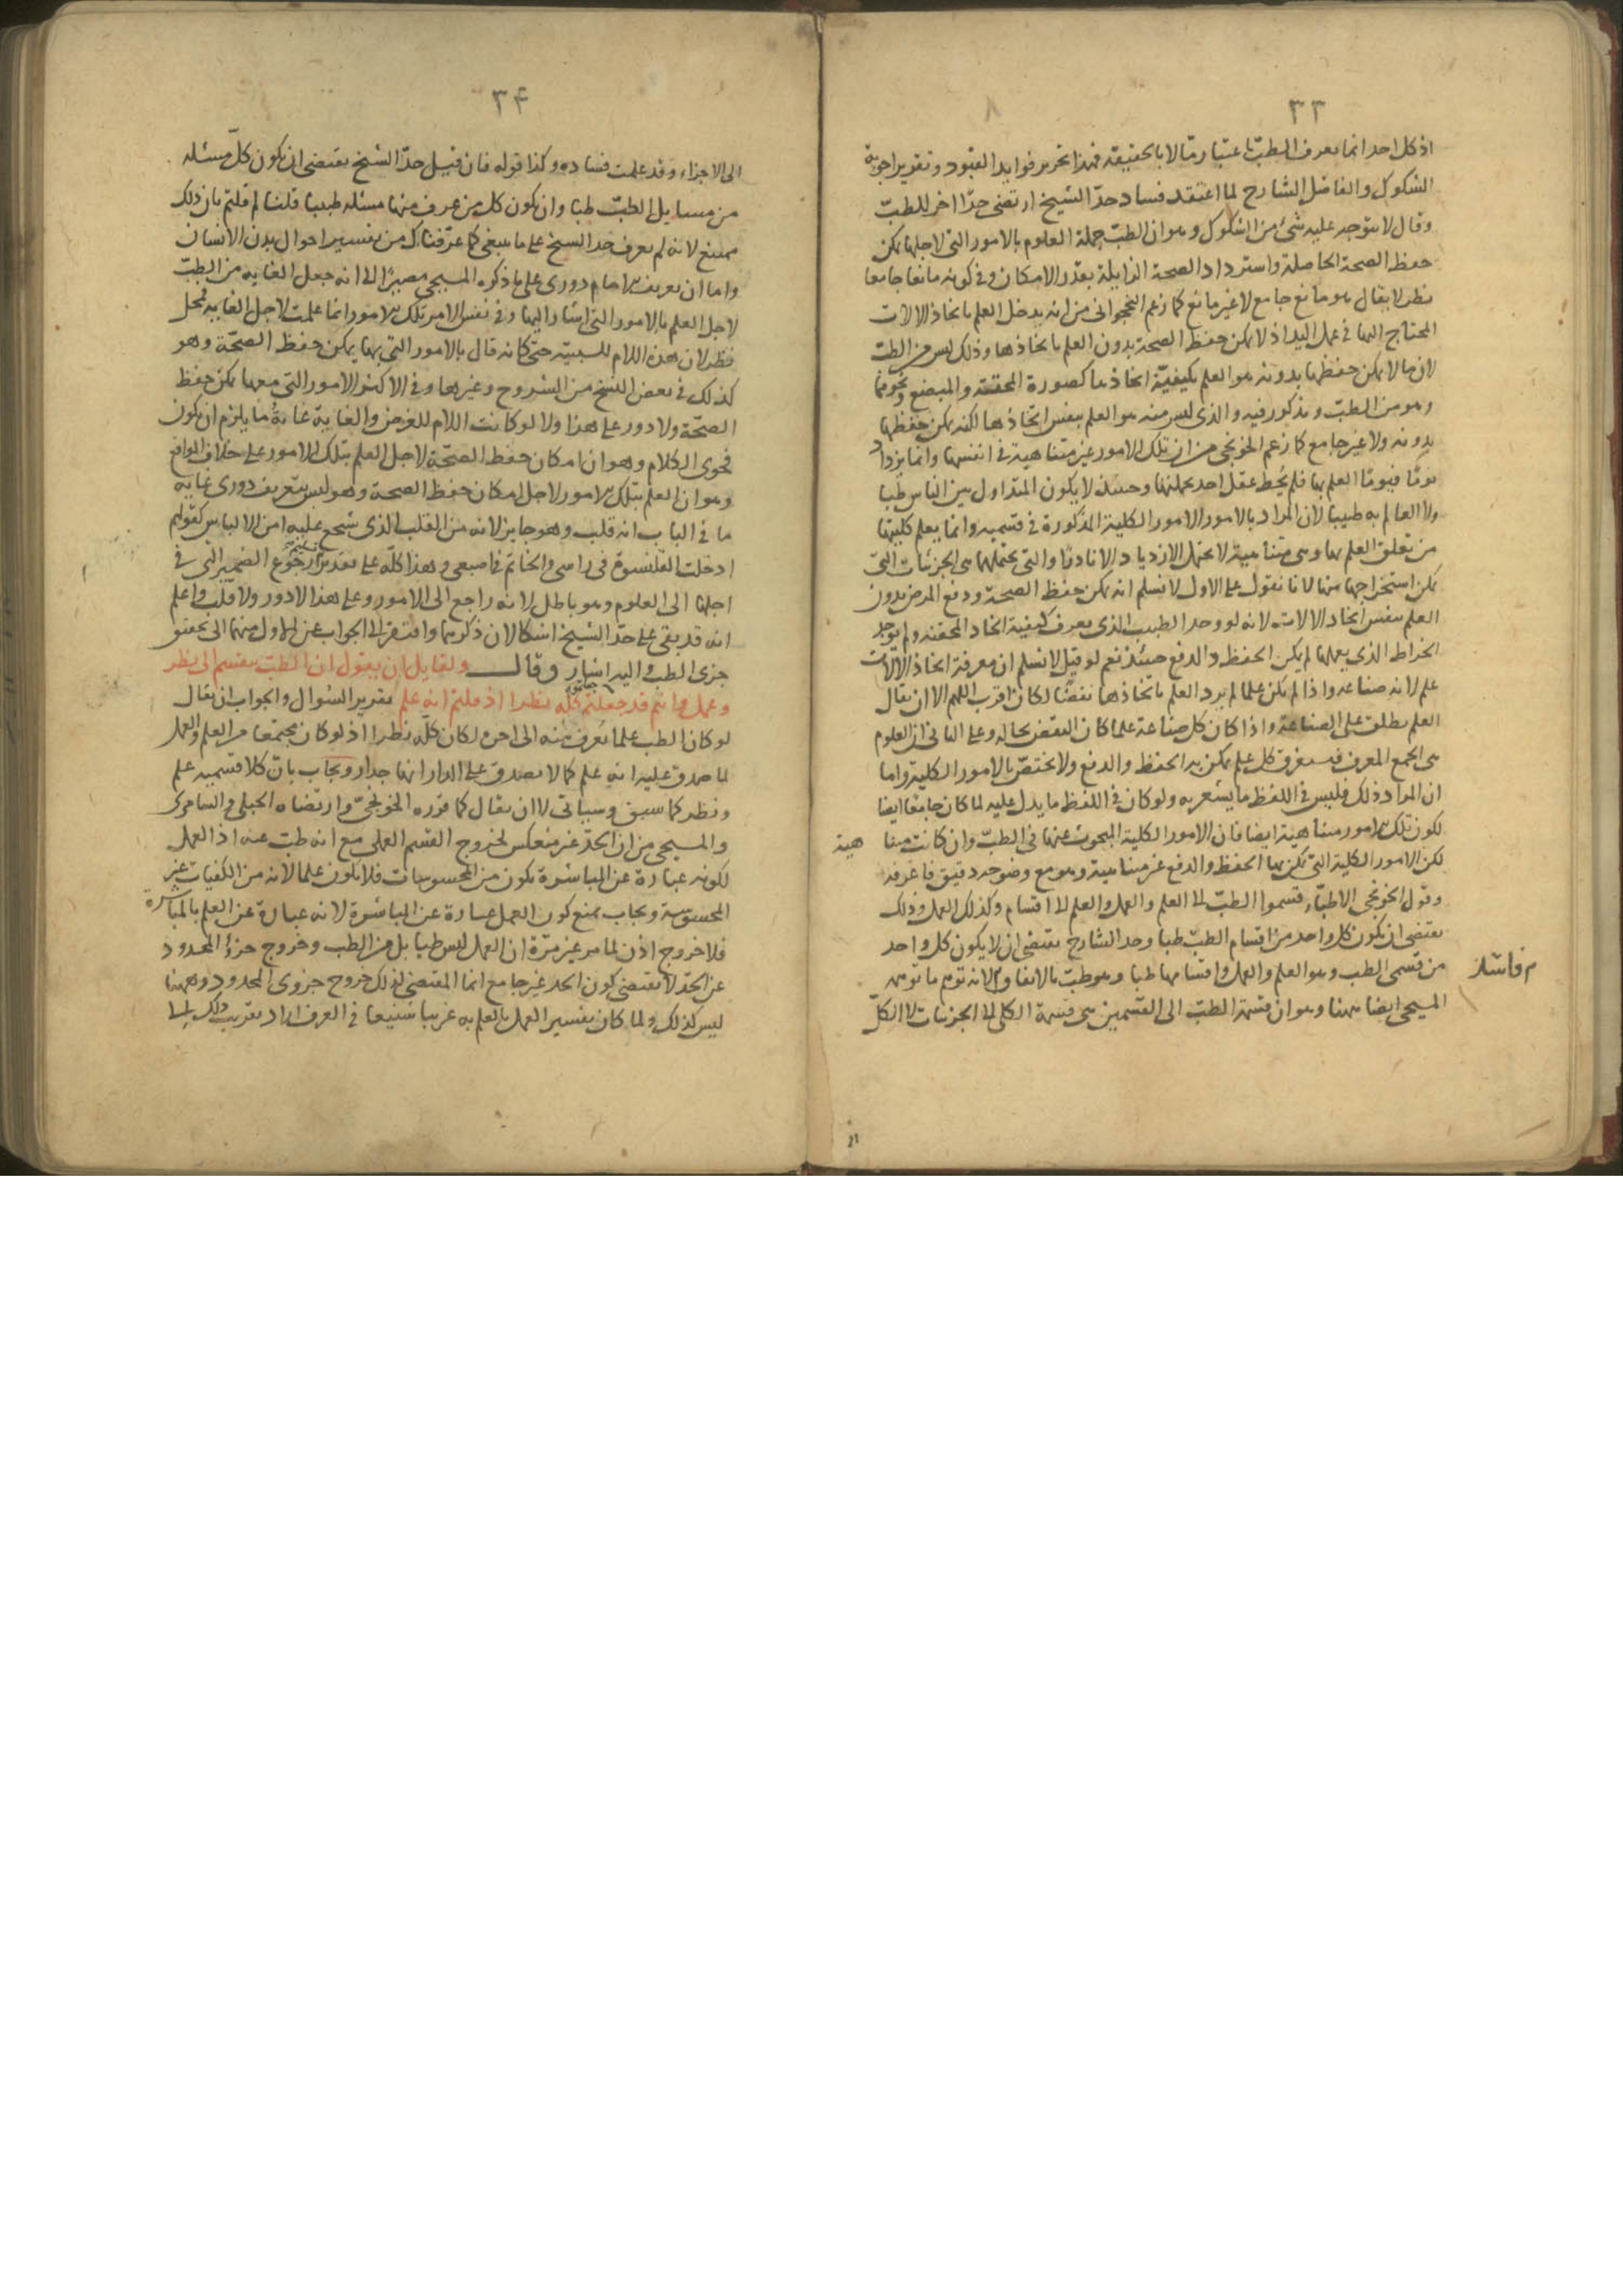 ٣٣
اذ كل احد انما يعرف الطب باعتبار ما لا بالحقيقة فهذا تحرير فوايد القيود وتقرير اجوبة
الشكوك والفاضل الشارح لما اعتقد فساد حد الشيخ ارتضى حدّا اخر للطبّ
وقال لا يتوجه عليه شئ من الشكوك وهو ان الطب جملة العلوم بالامور التى لاجلها يمكن
حفظ الصحة الحاصلة واسترداد الصحة الزايلة بقدر الامكان وفى كونه مانعا جامعا
نظر لا يقال هو مانع جامع لا غير مانع كما زعم النخجوانى من انه يدخل العلم باتخاذ الالات
المحتاج اليها فى عمل اليد اذ لا يمكن حفظ الصحة بدون العلم باتخاذها وذلك ليس من الطب
لان ما لا يمكن حفظها بدونه هو العلم بكيفيّة اتخاذها كصورة المحقنة والمبضع ونحوهما
وهو من الطبّ ومذكور فيه والذى ليس منه هو العلم بنفس اتخاذها لكنه يمكن حفظها
بدونه ولا غير جامع كما زعم الخونجى من ان تلك الامور غير متناهية فى انفسها وانما يزداد
يومًا فيومًا العلم بها فلم يُحط عقل احد بجملتها وحينئذ لا يكون المتداول بين الناس طبا
ولا العالم به طبيبا لان المراد بالامور الامور الكلية المذكورة فى قسميه وانما يعلم كليتها
من تعلق العلم بها وهى متناهية لا تحتمل الازدياد الا نادرًا والتى يحتملها هى الجزئيات التى
يمكن استخراجها منها لانا نقول على الاول لا نسلم انه يمكن حفظ الصحة ودفع المرض بدون
العلم بنفس اتخاذ الالات لانه لو وجد الطبيب الذى يعرف كيفية اتخاذ المحقنة ولم يوجد
الخراط الذى يعملها لم يكن الحفظ والدفع حينئذ نعم لو قيل لا نسلم ان معرفة اتخاذ الالات
علم لانه صناعه واذا لم يكن علما لم يرد العلم باتخاذها نقضًا لكان اقرب اللهم الا ان يقال
العلم يطلق على الصناعة واذا كان كل صناعة علما كان النقض بحاله وعلى الثانى ان العلوم
هى الجمع المعرف فيستغرق كل علم يمكن به الحفظ والدفع ولا يختصّ بالامور الكلية واما
ان المراد ذلك فليس فى اللفظ ما يشعر به ولو كان فى اللفظ ما يدل عليه لما كان جامعًا ايضا
لكون تلك الامور متناهية ايضا فان الامور الكلية المبحوث عنها فى الطبّ وان كانت متنا هية
لكن الامور الكلية التى يمكن بها الحفظ والدفع غير متناهية وهو مع وضوحه دقيق فاعرفه
وقول الخونجى الاطباء قسموا الطبّ الى العلم والعمل والعلم الى اقسام وكذلك العمل وذلك
يقتضى ان يكون كل واحد من اقسام الطبّ طبا وحد الشارح يقتضى ان لا يكون كل واحد
من قسمى الطب وهو العلم والعمل واقسامها طبا وهو طبّ بالاتفاق م لانه توهم ما توهمه
م فاسد
المسيحى ايضا ههنا وهو ان قسمة الطبّ الى القسمين هى قسمة الكلى الى الجزئيات لا الكلّ
٣٤
الى الاجزاء وقد علمت فساده وكذا قوله فان قيل حدّ الشيخ يقتضى ان يكون كلّ مسئله
من مسايل الطبّ طبا وان يكون كل من عرف منها مسئله طبيبا قلنا لم قلتم بان ذلك
ممتنع لانه لم يعرف حد الشيخ على ما ينبغى كما عرّفناك من تفسير احوال بدن الانسان
واما ان تعريف الامام دورى على ما ذكره المسيحى مصيرًا الى انه جعل الغايه من الطبّ
لاجل العلم بالامور التى اشار اليها وفى نفس الامر تلك الامور انما علمت لاجل الغايه فمحل
نظر لان هذه اللام للسببيّه حتى كانه قال بالامور التى بها يمكن حفظ الصحّة وهو
كذلك فى بعض النسخ من الشروح وغيرها وفى الاكثر الامور التى معها يمكن حفظ
الصحّة ولا دور على هذا ولا لو كانت اللام للغرض والغاية غاية ما يلزم ان يكون
فحوى الكلام وهو ان امكان حفظ الصحّة لاجل العلم بتلك الامور على خلاف الواقع
وهو ان العلم بتلك الامور لاجل امكان حفظ الصحة وهو ليس بتعريف دورى غاية
ما فى الباب انه قلب وهو جايز لانه من القلب الذى شجع عليه امن الالباس كقولهم
ادخلت القلنسوة فى راسى والخاتم فى اصبعى وهذا كلّه على تقدير رجوع الضمير الذى فى
اجلها الى العلوم وهو باطل لانه راجع الى الامور وعلى هذا لا دور ولا قلب واعلم
انه قد بقى على حدّ الشيخ اشكالان ذكرهما وافتقر الى الجواب عن الاول منهما الى تحقيق
جزئ الطب واليه اشار وقال ولقايل ان يقول ان الطبّ ينقسم الى نظر
وعمل وانتم قد جعلتم كلّه نظرا اذ قلتم انه علم تقرير السّوال والجواب ان يقال
لو كان الطب علما يُعرف منه الى اخره لكان كلّه نظرا اذ لو كان مجتمعا من العلم والعمل
لما صدق عليه انه علم كما لا يصدق على الدار انها جدار ويجاب بان كلا قسميه علم
ونظر كما سبق وسياتى لا ان يقال كما قرره الخونجىّ وارتضاه الجيلى والسامرى
والمسيحى من ان الحدّ غير منعكس لخروج القسم العملى مع انه طب عنه اذ العمل
لكونه عبارة عن المباشرة يكون من المحسوسات فلا يكون علما لانه من الكفيات غير
المحسوسة ويجاب بمنع كون العمل عبارة عن المباشرة لانه عبارة عن العلم بالمباشرة
فلا خروج اذن لما مر غير مرّة ان العمل ليس طبا بل من الطب وخروج جزءُ المحدود
عن الحدّ لا يقتضى كون الحد غير جامع انما المقتضى لذلك خروج جزوى المحدود وههنا
ليس كذلك ولما كان تفسير العمل بالعلم به غريبا شنيعا فى العرف اراد تقريب ذلك الى